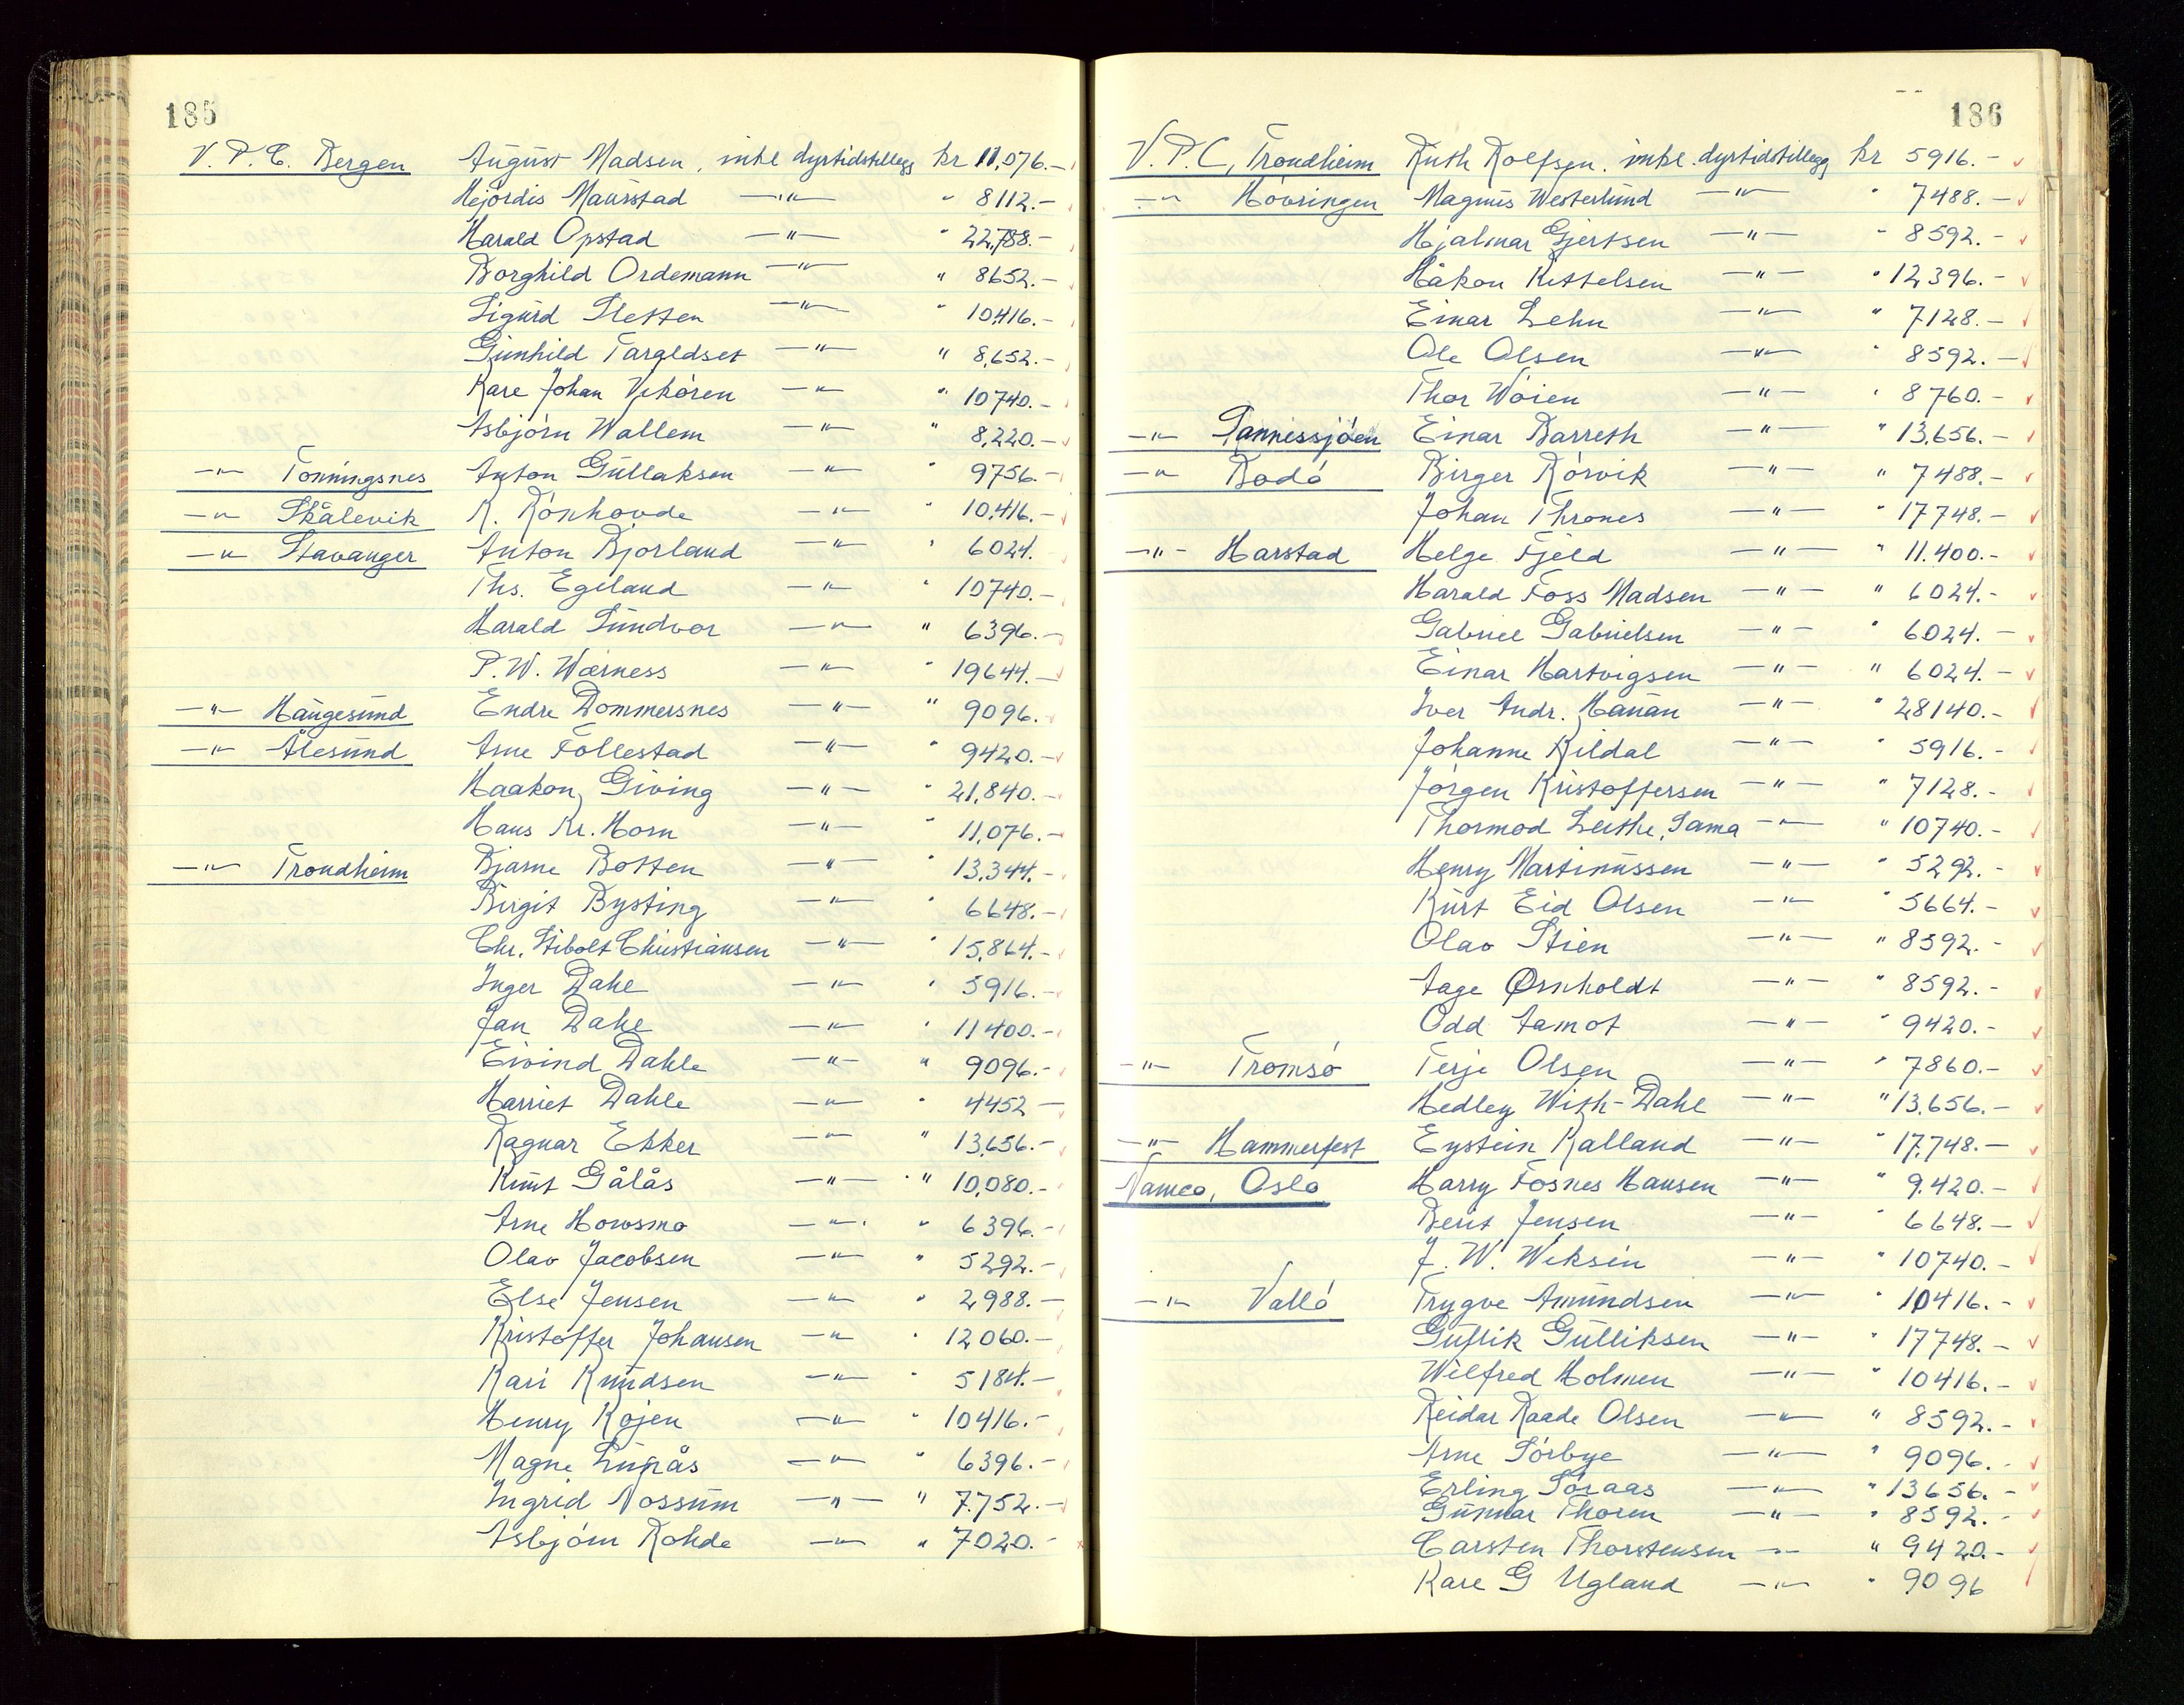 185
V. P. C. Bergen August Madsen, inkl dyrtidstillegg kr 11,076.-
Hejördis Maurstad —"— " 8112.-
Harald Opstad —"— " 22,788.-
Borghild Ordemann —"— " 8652.-
Sigurd Sletten —"— " 10,416.-
Gunhild Targldset —"— " 8,652.-
Kare Johan Vikören —"— " 10740.-
Asbjörn Wallem —"— " 8,220.-
—"— Tonningsnes Anton Gullaksen —"— " 9756.-
—"— Skålevik R. Rönhovde —"— " 10,416.-
—"— Stavanger Anton Bjorland —"— " 6024.
Ths. Egeland —"— " 10740.-
Harald Sundvor —"— " 6396.-
P. W. Wærness —"— " 19644.-
—"— Haugesund Endre Dommersnes —"— " 9096.
—"— Ålesund Arne Follestad —"— " 9420.-
Haakon Giving —"— " 21,840.-
Hans Kr. Horn —"— " 11,076.-
—"— Trondheim Bjarne Botten —"— " 13,344.-
Birgit Bysting —"— " 6648.-
Chr. Stibolt Christiansen —"— " 15,864.-
Inger Dahl —"— " 5916.-
Jan Dahl —"— " 11400.-
Eivind Dahle —"— " 9096.-
Harriet Dahle —"— " 4452 —
Ragnar Ekker —"— " 13,656.-
Knut Gålås —"— " 10,080.-
Arne Howsmo —"— " 6396.-
Olav Jacobsen —"— " 5292.-
Else Jensen —"— " 2988.-
Kristoffer Johansen —"— " 12060.-
Kari Knudsen —"— " 5184.-
Henry Kojen —"— " 10416.-
Magne Lurås —"— " 6396.-
Ingrid Nossum —"— " 7.752.-
Asbjörn Rohde —"— " 7020.-
186
V. P. C, Trondheim Ruth Rolfsen. inkl. dyrtidstillegg kr 5916.-
—"— Hövringen Magnus Westerlund —"— " 7488.-
Hjalmar Gjertsen —"— " 8592.-
Håkon Kittelsen —"— " 12396.-
Einar Lehn —"— " 7128.-
Ole Olsen —"— " 8592.-
Thor Wöien —"— " 8760.-
—"— Sannessjöen Einar Barreth —"— " 13,656.-
—"— Bodö Birger Rörvik —"— " 7488.-
Johan Thrones —"— " 17748.-
—"— Harstad Helge Fjeld —"— " 11.400.-
Harald Foss Madsen —"— " 6024.-
Gabriel Gabrielsen —"— " 6024.-
Einar Hartvigsen —"— " 6024.-
Iver Andr. Hanan —"— " 28140.-
Johanne Kildal —"— " 5916.-
Jörgen Kristoffersen —"— " 7128.-
Thormod Leithe, Sama —"— " 10740.-
Henry Martinussen —"— " 5292.-
Kurt Eid Olsen —"— " 5664.-
Olav Stien —"— " 8592.-
Aage Ørnholdt —"— " 8592.-
Odd Aamot —"— " 9420.-
—"— Tromsö Terje Olsen —"— " 7860.-
Hedley With-Dahl —"— " 13.656.-
—"— Hammerfest Eystein Kalland —"— " 17.748.-
Namco, Oslo Harry Fosnes Hansen —"— " 9.420.-
Berit Jensen —"— " 6648.-
J. W. Weksin —"— " 10740.-
—"— Vallö Trygve Amundsen —"— " 10416.-
Gullik Gulliksen —"— " 17748.-
Wilfred Holmen —"— " 10416.-
Reidar Raade Olsen —"— " 8592.-
Arne Sörbye —"— " 9096.-
Erling Söraas —"— " 13656.-
Gunnar Thoren —"— " 8592.-
Carsten Thorstensen —"— " 9420.-
Kare G Ugland —"— " 9096